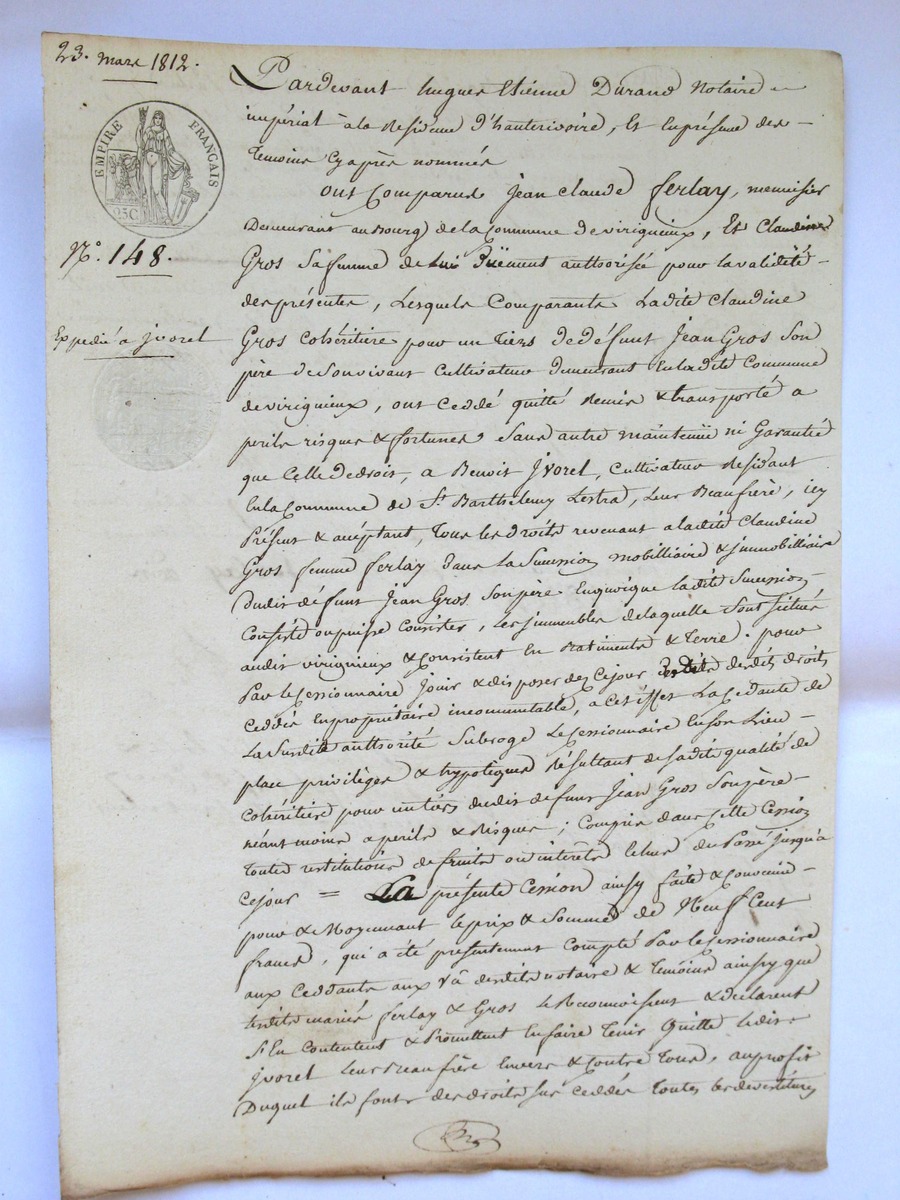 23. mars 1812.
EMPIRE FRANÇAIS
25C
N°. 148.
Expedié a jvorel
Pardevant hugues Etienne Durand Notaire
impérial à la Residence d'hauterivoire, Et En présence des
Temoins Cyaprès nommés
ont Comparus Jean Claude ferlay, menuisier
Demeurant au Bourg de la Commune de virigneux, Et Claudine
Gros Sa femme de lui Düement authorisée pour la validité
des présentes, Lesquels Comparants Ladite Claudine
Gros Cohéritiere pour un Tiers de défunt Jean Gros Son
père de Son vivant Cultivateur Demeurant En ladite Commune
de virignieux, ont Ceddé quitté Remis & transporté a
perils risques & fortunes Sans autre maintenüe ni Garantie
que Celle de droit, a Benoit Jvorel, Cultivateur Résidant
En la Commune de St. Barthelemy Lestra, Leur Beaufrère, icy
Présent & acéptant, Tous les droits revenant a ladite Claudine
Gros femme ferlay Dans La Succession mobilliaire & jmmobilliaire
Dudit défunt Jean Gros Son père En quoique ladite Succession
Consiste ou puisse Consister, les jmmeubles de laquelle Sont Situés
audit virignieux & Consistent En Batiments & Terre. pour
Par le Cessionnaire Jouir & disposer dez Cejour desdits droits
Ceddés En propriétaire incommutable, a Cet éffet La Cedante de
La Susdite authorité Subroge Le Cessionnaire En Son Lieu
place privilèges & hypotèques Résultant de Sa dite qualité de
Cohéritiere pour un tiers dudit défunt Jean Gros Son père
néant moins a perils & Risques; Compris dans Cette Cession
Toutes restitutions de fruits ou intérèts Echus du Passé jusqu'a
Cejour = La présente Cession ainsy faite & Convenüe
pour & Moyennant le prix & Somme de Neuf Cent
francs, qui a été présentement Compté Par le Cessionnaire
aux Ceddants aux vû desdits notaire & Temoins ainsy que
lesdits mariés ferlay & Gros le Reconnoissent & déclarent
S'En Contentent & Promettent En faire Tenir Quitte ledit
Jvorel Leur Beaufrère Envers & Contre Tous, au profit
Duquel ils font des droits Sus Ceddés Toutes les devestitures